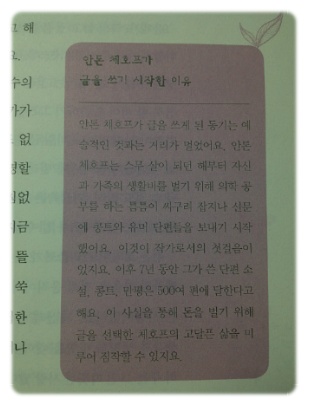 해
수의
가가
없
없
금
뜰
쑥
한
나
안톤 체호프가
글을 쓰기 시작한 이유
안톤 체호프가 글을 쓰게 된 동기는 예
술적인 것과는 거리가 멀었어요. 안톤
체호프는 스무 살이 되던 해부터 자신
과 가족의 생활비를 벌기 위해 의학 공
부를 하는 틈틈이 싸구려 잡지나 신문
에 콩트와 유머 단편들을 보내기 시작
했어요. 이것이 작가로서의 첫걸음이
었지요. 이후 7년 동안 그가 쓴 단편 소
설, 콩트, 만평은 500여 편에 달한다고
해요. 이 사실을 통해 돈을 벌기 위해
글을 선택한 체호프의 고달픈 삶을 미
루어 짐작할 수 있지요.